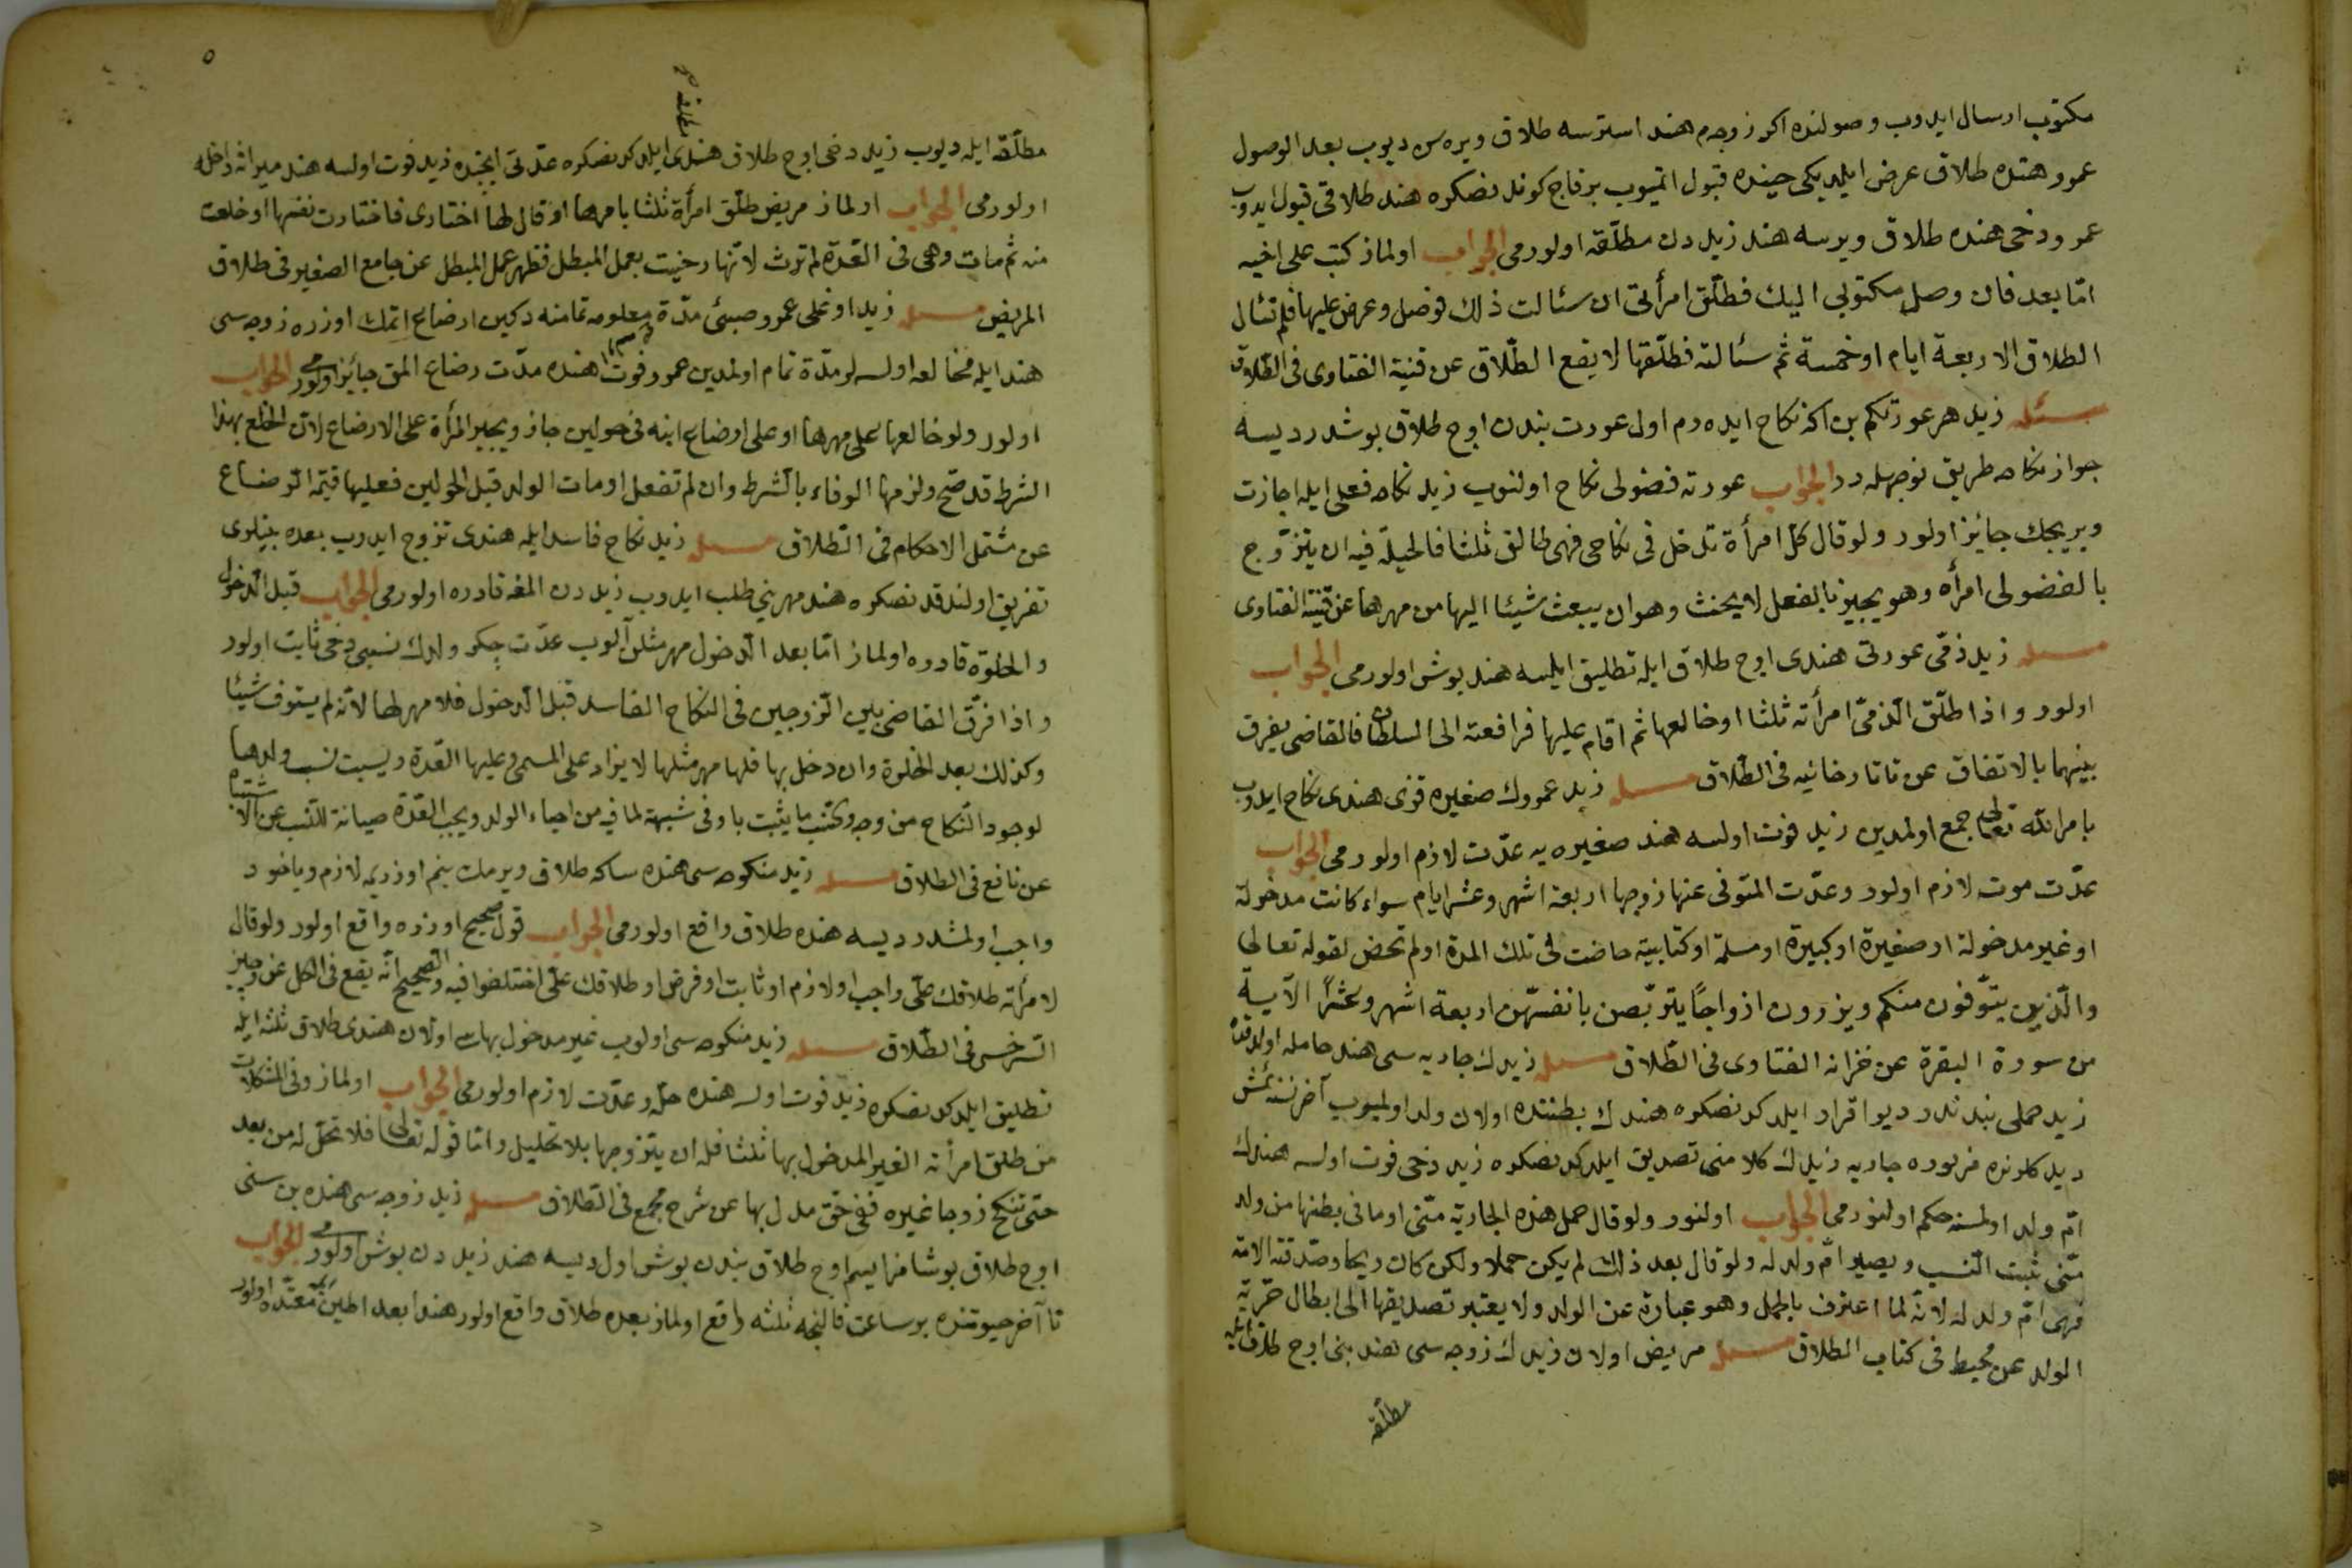 مكتوب ارسال ايدوب وصولنده اكر زوجم هند استرسه طلاق ويره سن ديوب بعد الوصول
عمرو هنده طلاق عرض ايلديكى حينده قبول اتميوب برقاج كوندنصكره هند طلاقى قبول ايدوب
عمرو دخى هنده طلاق ويرسه هند زيددن مطلقه اولورمى الجواب اولماز كتب على اخيه
امّا بعد فان وصل مكتوبى اليك فطلّق امرأتى ان سئالت ذلك فوصل وعرض عليها فلم تسئال
الطلاق الا اربعة ايام او خمسة ثم سئالته فطلّقها لا يقع الطّلاق عن قنية الفتاوى فى الطّلاق
مسئله زيد هر عورتكم بن اكا نكاح ايده رم اول عورت بندن اوج طلاق بوشدر ديسه
جواز نكاحه طريق نوجهله در الجواب عورته فضولى نكاح اولنوب زيد نكاحه فعلى ايله اجازت
ويريجك جائز اولور ولو قال كلّ امرأة تدخل فى نكاحى فهى طالق ثلثا فالحيلة فيه ان يتزوّج
بالفضولى امرأه وهو يجيز بالفعل لا يحنث وهو ان يبعث شيئا اليها من مهرها عن قنية الفتاوى
مسئله زيد ذمّى عورتى هندى اوج طلاق ايله تطليق ايلسه هند بوش اولورمى الجواب
اولور واذا طلّق الذمىّ امرأته ثلثا او خالعها ثم اقام عليها فرافعته الى السلطان فالقاضى يفرق
بينهما بالاتفاق عن تاتارخانيه فى الطّلاق مسئله زيد عمروك صغيره قزى هندى نكاح ايدوب
بامر الله تعالى جمع اولمدين زيد فوت اولسه هند صغيره يه عدّت لازم اولورمى الجواب
عدّت موت لازم اولور وعدّت المتوفى عنها زوجها اربعة اشهر وعشر ايام سواء كانت مدخولة
او غير مدخولة او صغيرة او كبيرة او مسلمة او كتابية حاضت فى تلك المدة او لم تحض لقوله تعالى
والّذين يتوّفون منكم ويزرون ازواجًا يتربّصن بانفسهّن اربعة اشهر وعشرًا الآية
من سورة البقرة عن خزانه الفتاوى فى الطّلاق مسئله زيدك جاريه سى هند حامله اولدقده
زيد حملى بندندر ديو اقرار ايلدكدنصكره هندك بطننده اولان ولد اولميوب آخر نسنه ئمش
ديدكلرنده مزبوره جاريه زيدك كلامنى تصديق ايلدكدنصكره زيد دخى فوت اولسه هندك
امّ ولد اولمسنه حكم اولنورمى الجواب اولنور ولو قال حمل هذه الجارية منّى او ما فى بطنها من ولد
منّى ثبت النّسب ويصير امّ ولد له ولو قال بعد ذلك لم يكن حملا ولكن كان ريحا وصدّقته الامة
فهى امّ ولد له لانّه لما اعترف بالحمل وهو عبارة عن الولد ولا يعتبر تصديقها الى ابطال حرّية
الولد عن محيط فى كتاب الطلاق مسئله مريض اولان زيدك زوجه سى هند بنى اوج طلاق ايله
مطلّقه
٥
مطلّقه ايله ديوب زيد دخى اوج طلاق هندى ايلدكدنصكره عدّتى ايجنده زيد فوت اولسه هند ميراثه داخله
اولورمى الجواب اولماز مريض طلّق امرأة ثلثا بامرها او قال لها اختارى فاختارت نفسها او خلعت
منه ثم مات وهى فى العّدة لم ترث لانّها رضيت بعمل المبطل فظهر عمل المبطل عن جامع الصغير فى طلاق
المريض مسئله زيد اوغلى عمرو صبىّ مدّة معلومه تمامنه دكين ارضاع اتمك اوزره زوجه سى
هند ايله مخالعه اولسه لر مدّة تمام اولمدين عمرو فوت هنده مدّت رضاع المق جائز اولورمى الجواب
اولور ولو خالعها على مهرها او على ارضاع ابنه فى حولين جاز ويجبر المرأة على الارضاع لانّ الخلع بهذا
الشرط قد صحّ ولزمها الوفاء بالشّرط وان لم تفعل او مات الولد قبل الحولين فعليها قيمة الرّضاع
عن مشتمل الاحكام فى الطّلاق مسئله زيد نكاح فاسد ايله هندى تزوج ايدوب بعده بينلرى
تفريق اولندقدنصكره هند مهرينى طلب ايدوب زيددن المغه قادره اولورمى الجواب قبل الدّخول
والخلوة قادره اولماز امّا بعد الدّخول مهر مثلن آلوب عدّت چكر ولدك نسبى دخى ثابت اولور
واذا فرّق القاضى بين الزوجين فى النكاح الفاسد قبل الدخول فلا مهر لها لانّه لم يستوف شيئا
وكذلك بعد الخلوة وان دخل بها فلها مهر مثلها لا يزاد على المسمى وعليها العّدة ويسبت نسب ولدها
لوجود النّكاح من وجه والنسب ما يثبت باوفى شبهة لما فيه من احياء الولد ويجب العّدة صيانة للنّسب عن الاشتباه
عن نافع فى الطلاق مسئله زيد منكوحه سى هنده ساكه طلاق ويرمك بنم اوزريمه لازم وياخود
واجب اولمشدر ديسه هنده طلاق واقع اولورمى الجواب قول صحيح اوزره واقع اولور ولو قال
لامرأته طلاقك علىّ واجب او لازم او ثابت او فرض او طلاقك علىّ اختلفوا فيه والصّحيح انّه يقع فى الكل عن وجيز
السّرخسى فى الطّلاق مسئله زيد منكوحه سى اولوب غير مدخول بها سى اولان هندى طلاق ثلثه ايله
تطليق ايلدكدنصكره زيد فوت اولسه هنده حلّه وعدّت لازم اولورمى الجواب اولماز وفى المشكلات
من طلق امرأته الغير المدخول بها ثلثا فله ان يتزوجها بلا تحليل وامّا قوله تعالى فلا تحلّ له من بعد
حتى تنكح زوجا غيره ففى حقّ مدخول بها عن شرح مجمع فى الطّلاق مسئله زيد زوجه سى هنده بن سنى
اوج طلاق بوشامزايسم اوج طلاق بندن بوش اول ديسه هند زيددن بوش اولورمى الجواب
تا آخر حيوتنده برساعت قالنجه ثلثه واقع اولماز بعده طلاق واقع اولور هند ابعد اجلين معتدّه اولور